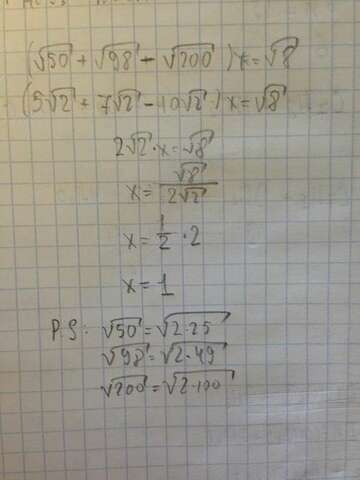 (√50 + √98 - √200)x = √8
(5√2 + 7√2 - 10√2)x = √8
2√2·x = √8
x = √8 / 2√2
x = 1/2 · 2
x = 1
P.S: √50 = √2·25
√98 = √2·49
√200 = √2·100